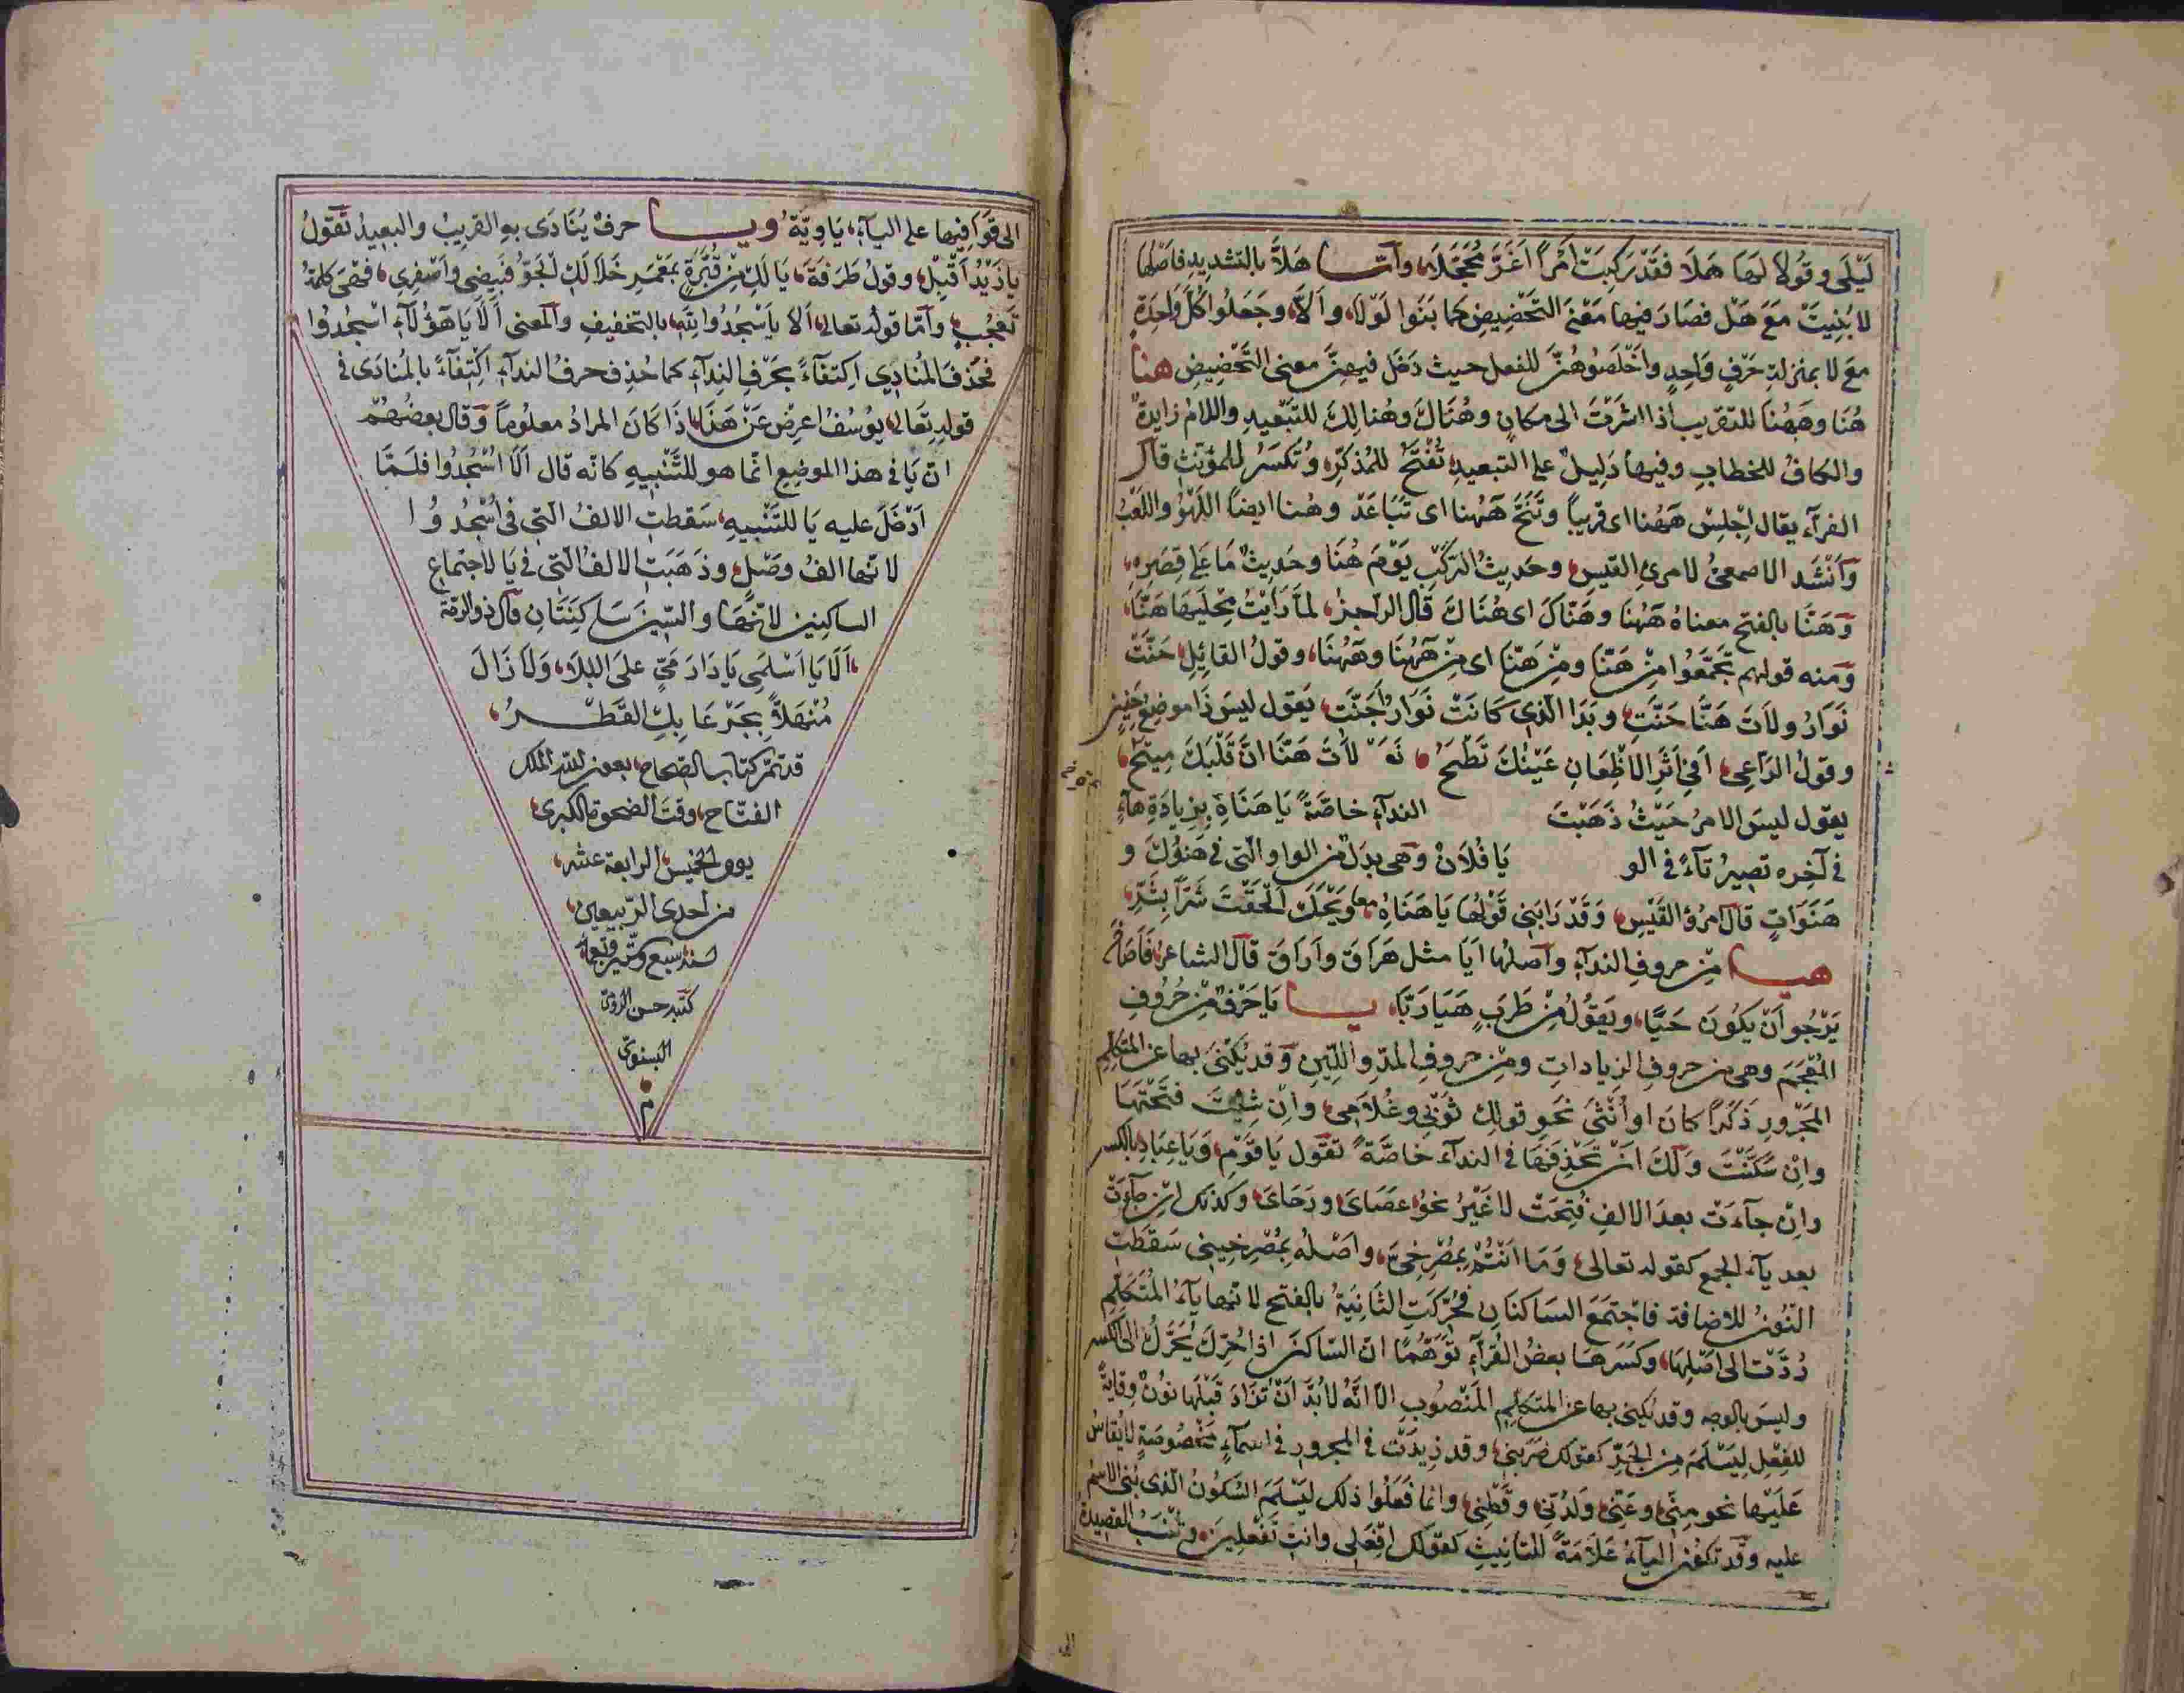 لَيْلَى وقُولا لها هَلَا فقَدْ رَكِبَتْ اَمْرًا اَغَرَّ مُحَجَّلَا وأمّا هَلاَّ بالتشديد فاَصْلُها
لا بُنِيَتْ مَعَ هَلْ فصَارَ فيها مَعْنَى التَّحْضِيضِ كما بَنَوا لَوْلا وأَلاَّ وجَعَلُوا كُلَّ وَاحِدَةٍ
مَعَ لا بمنزلةِ حَرْفٍ وَاحِدٍ واَخْلَصُوهُنَّ للفعل حيث دَخَلَ فيهنَّ معنى التَّحْضِيضِ هنا
هُنَا وهَهُنَا للتقريب اذا اشَرْتَ الى مكانٍ وهُنَاكَ وهُنالِكَ للتَّبْعِيدِ واللامُ زايدةٌ
والكافُ للخطابِ وفيها دَلِيلٌ على التبعيدِ تُفْتَحُ للمُذَكّرِ وتُكْسَرُ للمؤنّثِ قال
الفرآء يقال اِجْلِسْ هَهُنا اى قريباً وتَنَحَّ هَهُنا اى تَبَاعَدْ وهُنا ايضًا اللَّهْوُ واللَّعْبُ
وَاَنْشَد الاصمعىُّ لامرئِ القيسِ وحَدِيثُ الرَّكْبِ يَوْمَ هُنَا وحَدِيثٌ مَا عَلَى قِصَرِهِ
وَهَنَّا بالفتح معناهُ هَهُنَا وهَنَّاكَ اى هُنَاكَ قَال الراجز لمّا رَاَيْتُ مِحْلَيْهَا هَنَّا
وَمنه قولهم تَجَمَّعُوا مِنْ هَنَّا ومِنْ هَنَّا اى مِنْ هَهُنَا وهَهُنَا وقولُ القائِلِ حَنَّتْ
نَوَارُ ولَاتَ هَنَّا حَنَّتِ وبَدَا الّذِى كَانَتْ نَوَارُ اَجَنَّتِ يَقول ليسَ ذَا موضِعَ حَنِينٍ
وقولُ الرّاعِى اَفِى اَثَرِ الاَظْعَانِ عَيْنُكَ تَطْمَحُ نَعَمْ لَاتَ هَنَّا اِنَّ قَلْبَكَ مِيْتَحُ
يقول ليسَ الامرُ حَيْثُ ذَهَبْتَ الندآءِ خاصّةً يَا هَنَاهُ بزِيادَةِ هآءٍ
فى آخِرِه تصِيرُ تآءً فى الو يَا فُلَانُ وهى بدَلٌ من الواو الّتى فى هَنُوكَ و
هَنَوَاتٍ قالَ امرُؤُ القَيْسِ وَقَدْ رَابَنِى قَوْلُها يَا هَنَاهُ وَيْحَكَ اَلْحَقْتَ شَرًّا بِشَرِّ
هيا مِنْ حروفِ الندآءِ وَاَصلها اَيَا مثل هَرَاقَ واَرَاقَ قَالَ الشاعر فَاَصَاخَ
يَرْجُو اَنْ يكُونَ حَيًّا ويَقُولُ مِنْ طَرَبٍ هَيَا رَبَّا يا يَا حَرْفٌ مِنْ حُرُوفِ
المُعْجَمِ وهى من حروفِ الزياداتِ ومِنْ حروفِ المدِّ واللّينِ وَقد يُكْنَى بها عن المتكلِّمِ
المَجْرُورِ ذَكَرًا كانَ او اُنْثَى نَحْوِ قولك ثَوْبِى وغُلَامِى واِنْ شِئْتَ فتَحْتَهَا
واِنْ سَكَّنْتَ وَلَكَ اَنْ تَحْذِفَهَا فى الندآءِ خَاصَّةً تقول يَا قَوْمِ وَيَا عِبَادِ بالكسر
وانْ جآءَتْ بعدَ الالفِ فُتِحَتْ لا غَيْرُ نحوُ عَصَاىَ ورَحَاىَ وكذلك اِنْ جآءَتْ
بعد يآء الجمع كقوله تعالى وَمَا اَنْتُمْ بِمُصْرِخِىَّ واَصْلهُ بِمُصْرِخِينِى سَقَطَتِ
النُّونُ للاضافة فاجْتَمَعَ السَاكنَانِ فحُرِّكَتِ الثَانِيَةُ بالفتح لانّها يآءُ المُتَكَلِّمِ
رُدَّتْ الى اَصْلِهَا وكَسَرَهَا بعضُ القُرَّآءِ تَوَهُّمًا انّ السّاكنَ اذا حُرِّكَ يُحَرَّكُ الى الكسر
وليسَ بالوجه وقد يُكنى بها عن المتكلِّمِ المَنْصُوبِ الّا انَّهُ لابُدَّ اَنْ تُزَادَ قَبْلَها نونُ وِقايةً
للفِعْلِ لِيَسْلَمَ مِنَ الجَرِّ كقولك ضَرَبَنِى وقد زِيدَتْ فى المجرورِ فى اسمآءٍ مَخْصُوصَةٍ لا يُقاسُ
عَلَيْها نحو مِنِّى وعَنِّى ولَدُنِّى وقَطْنِى وانما فَعَلُوا ذلك ليَسْلَمَ السُكُونُ الّذى بُنِى الاسْمُ
عليه وَقد تكونُ اليآءُ عَلَامَةً للتانِيثِ كقولك اِفْعَلِى وانتِ تَفْعَلِينَ وتُنْسَبُ القصيدةُ
الى
الى قَوَافِيها على اليآءِ يَاوِيّةٌ ويا حرفٌ يُنَادَى بهِ القريبُ والبعيدُ تَقولُ
يا زَيْدُ اَقْبِلْ وقولُ طَرَفَةَ يَا لَكِ مِنْ قُبَّرَةٍ بِمَعْمَرِ خَلَا لَكِ الْجَوُّ فَبِيضِى واَصْفِرِى فهى كلمةُ
تعجُّبٍ وأمّا قولُه تعالى اَلَا يا اَسْجُدُوا لِلّهِ بالتخفيفِ والمعنى اَلَا يَا هَؤُلَآءِ اسْجُدُوا
فحُذِفَ المُنَادِى اِكتفآءً بحَرْفِ النِدآءِ كما حُذِف حرفُ الندآءِ اِكْتِفَآءً بالمُنَادَى فى
قولِه تَعَالى يوُسُفُ اعرِضْ عَنْ هَذَا اِذَا كَانَ المرادُ معلُومًا وَقال بعضُهُمْ
انّ يَا فى هذا الموضِعِ انّما هو للتَّنْبِيهِ كانّه قال اَلَا اسْجُدُوا فلَمَّا
اَدْخَلَ عليه يَا للتَنْبِيهِ سَقطتِ الالفُ الّتى فى اُسْجُدُوا
لانّها الفُ وَصْلٍ وذَهَبَتِ الالفُ الّتى فى يَا لاجْتِماعِ
الساكِنينِ لانّهَا والسّينَ سَاكِنَتَانِ قَالَ ذو الرمّة
اَلَا يَا اَسْلَمِى يَا دَارَ مَىٍّ عَلَى البِلَا وَلَا زَالَ
مُنْهَلًّا بجَرْعَائِكِ القَطْرُ
قد تمّ كتاب الصّحاح بعون اللّه الملك
الفتّاح وقتَ الضحوة الكبرى
يوم الخميس الرابعة عشر
من احدى الرّبيعين
كتبه حسن
البسنوىّ
م